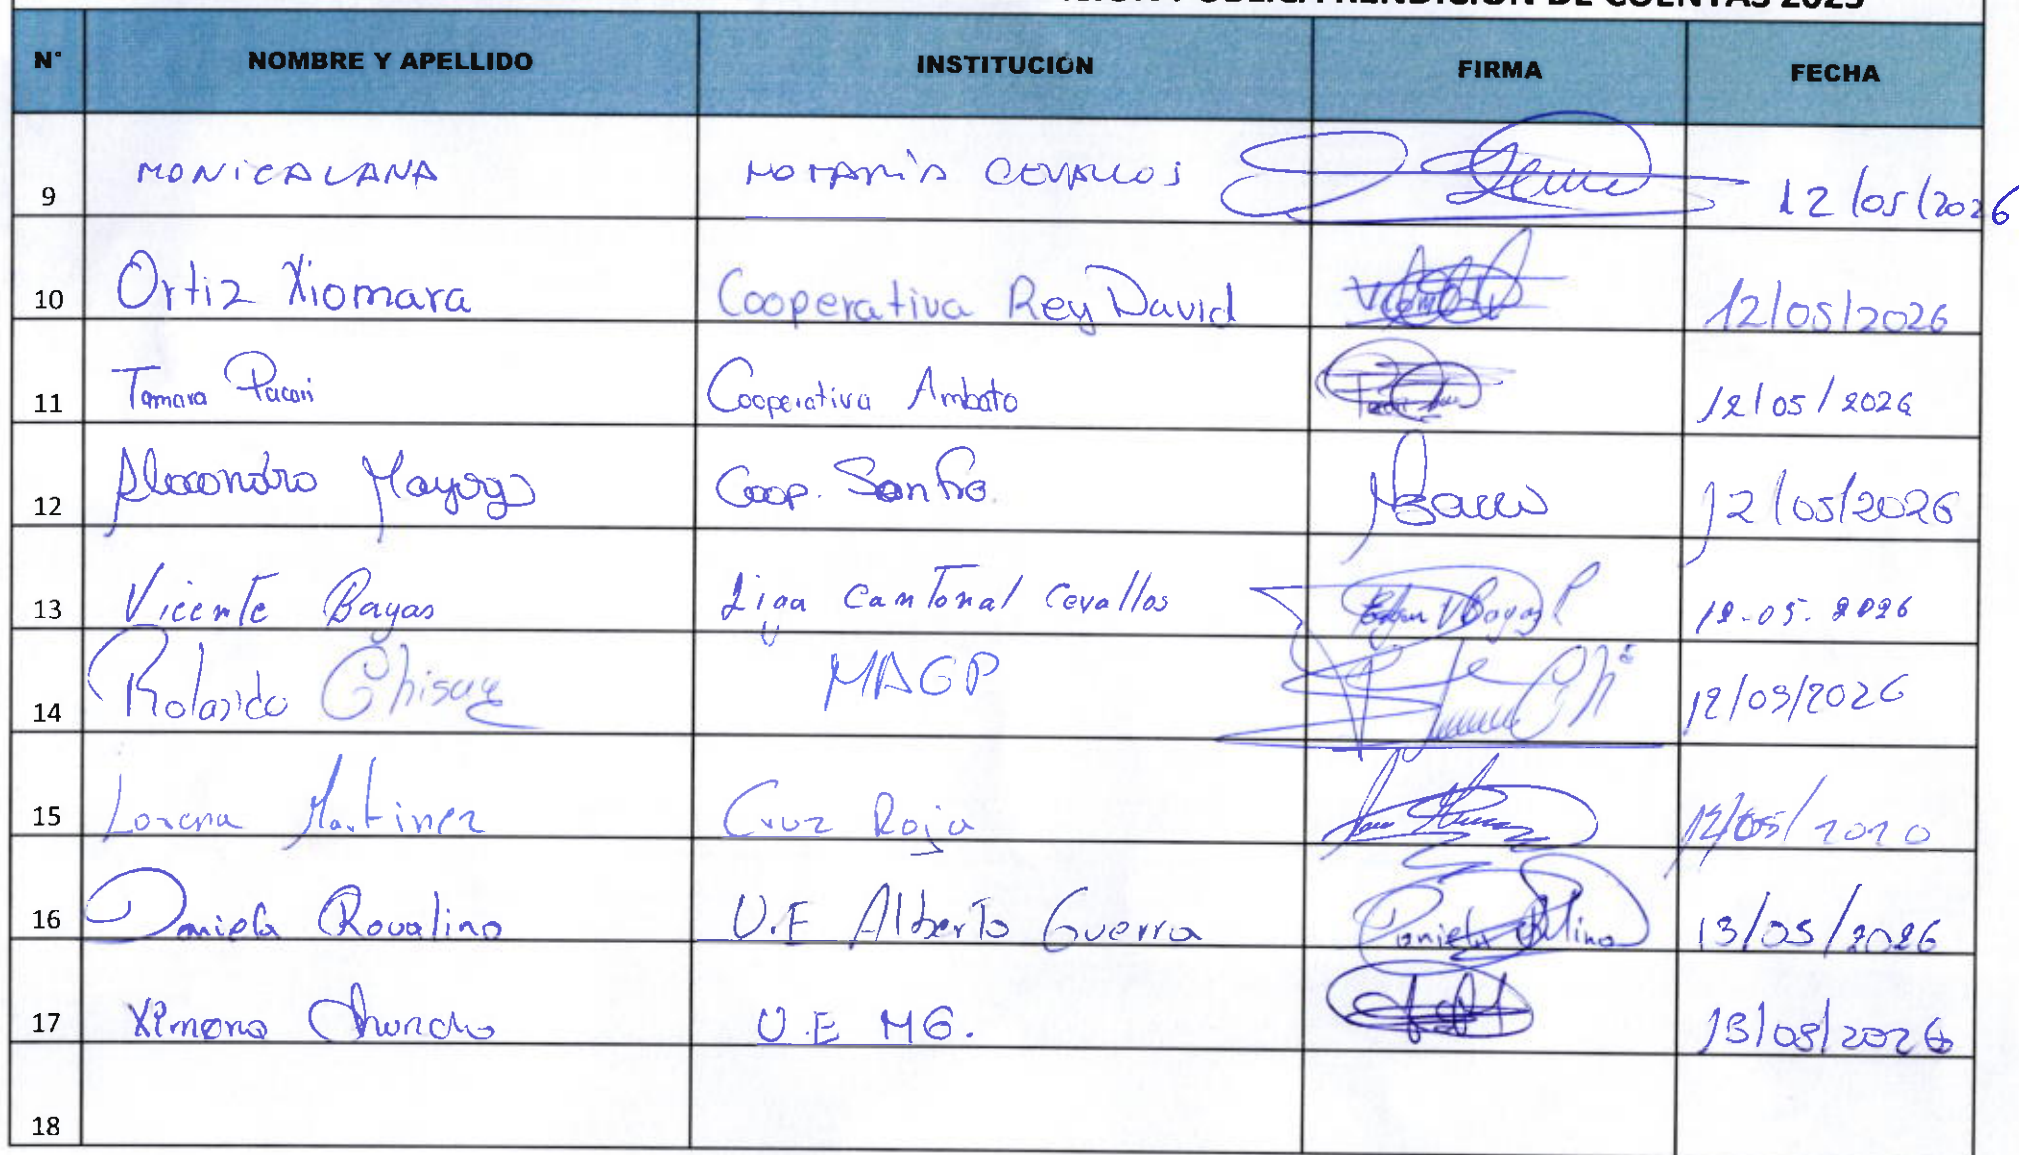 PÚBLICA RENDICIÓN DE CUENTAS 2025
N° NOMBRE Y APELLIDO INSTITUCIÓN FIRMA FECHA
9 MONICA LANA NOTARÍA CEVALLOS 12/05/2026
10 Ortiz Xiomara Cooperativa Rey David 12/05/2026
11 Tamara Pacari Cooperativa Ambato 12/05/2026
12 Alexandra Mayorga Coop. San Fra. 12/05/2026
13 Vicente Bayas Liga Cantonal Cevallos 12-05-2026
14 Rolando MAGP 12/05/2026
15 Lorena Martinez Cruz Roja 12/05/2020
16 Daniela Rovalino U.E Alberto Guerra 13/05/2026
17 Ximena U.E MG. 13/05/2026
18